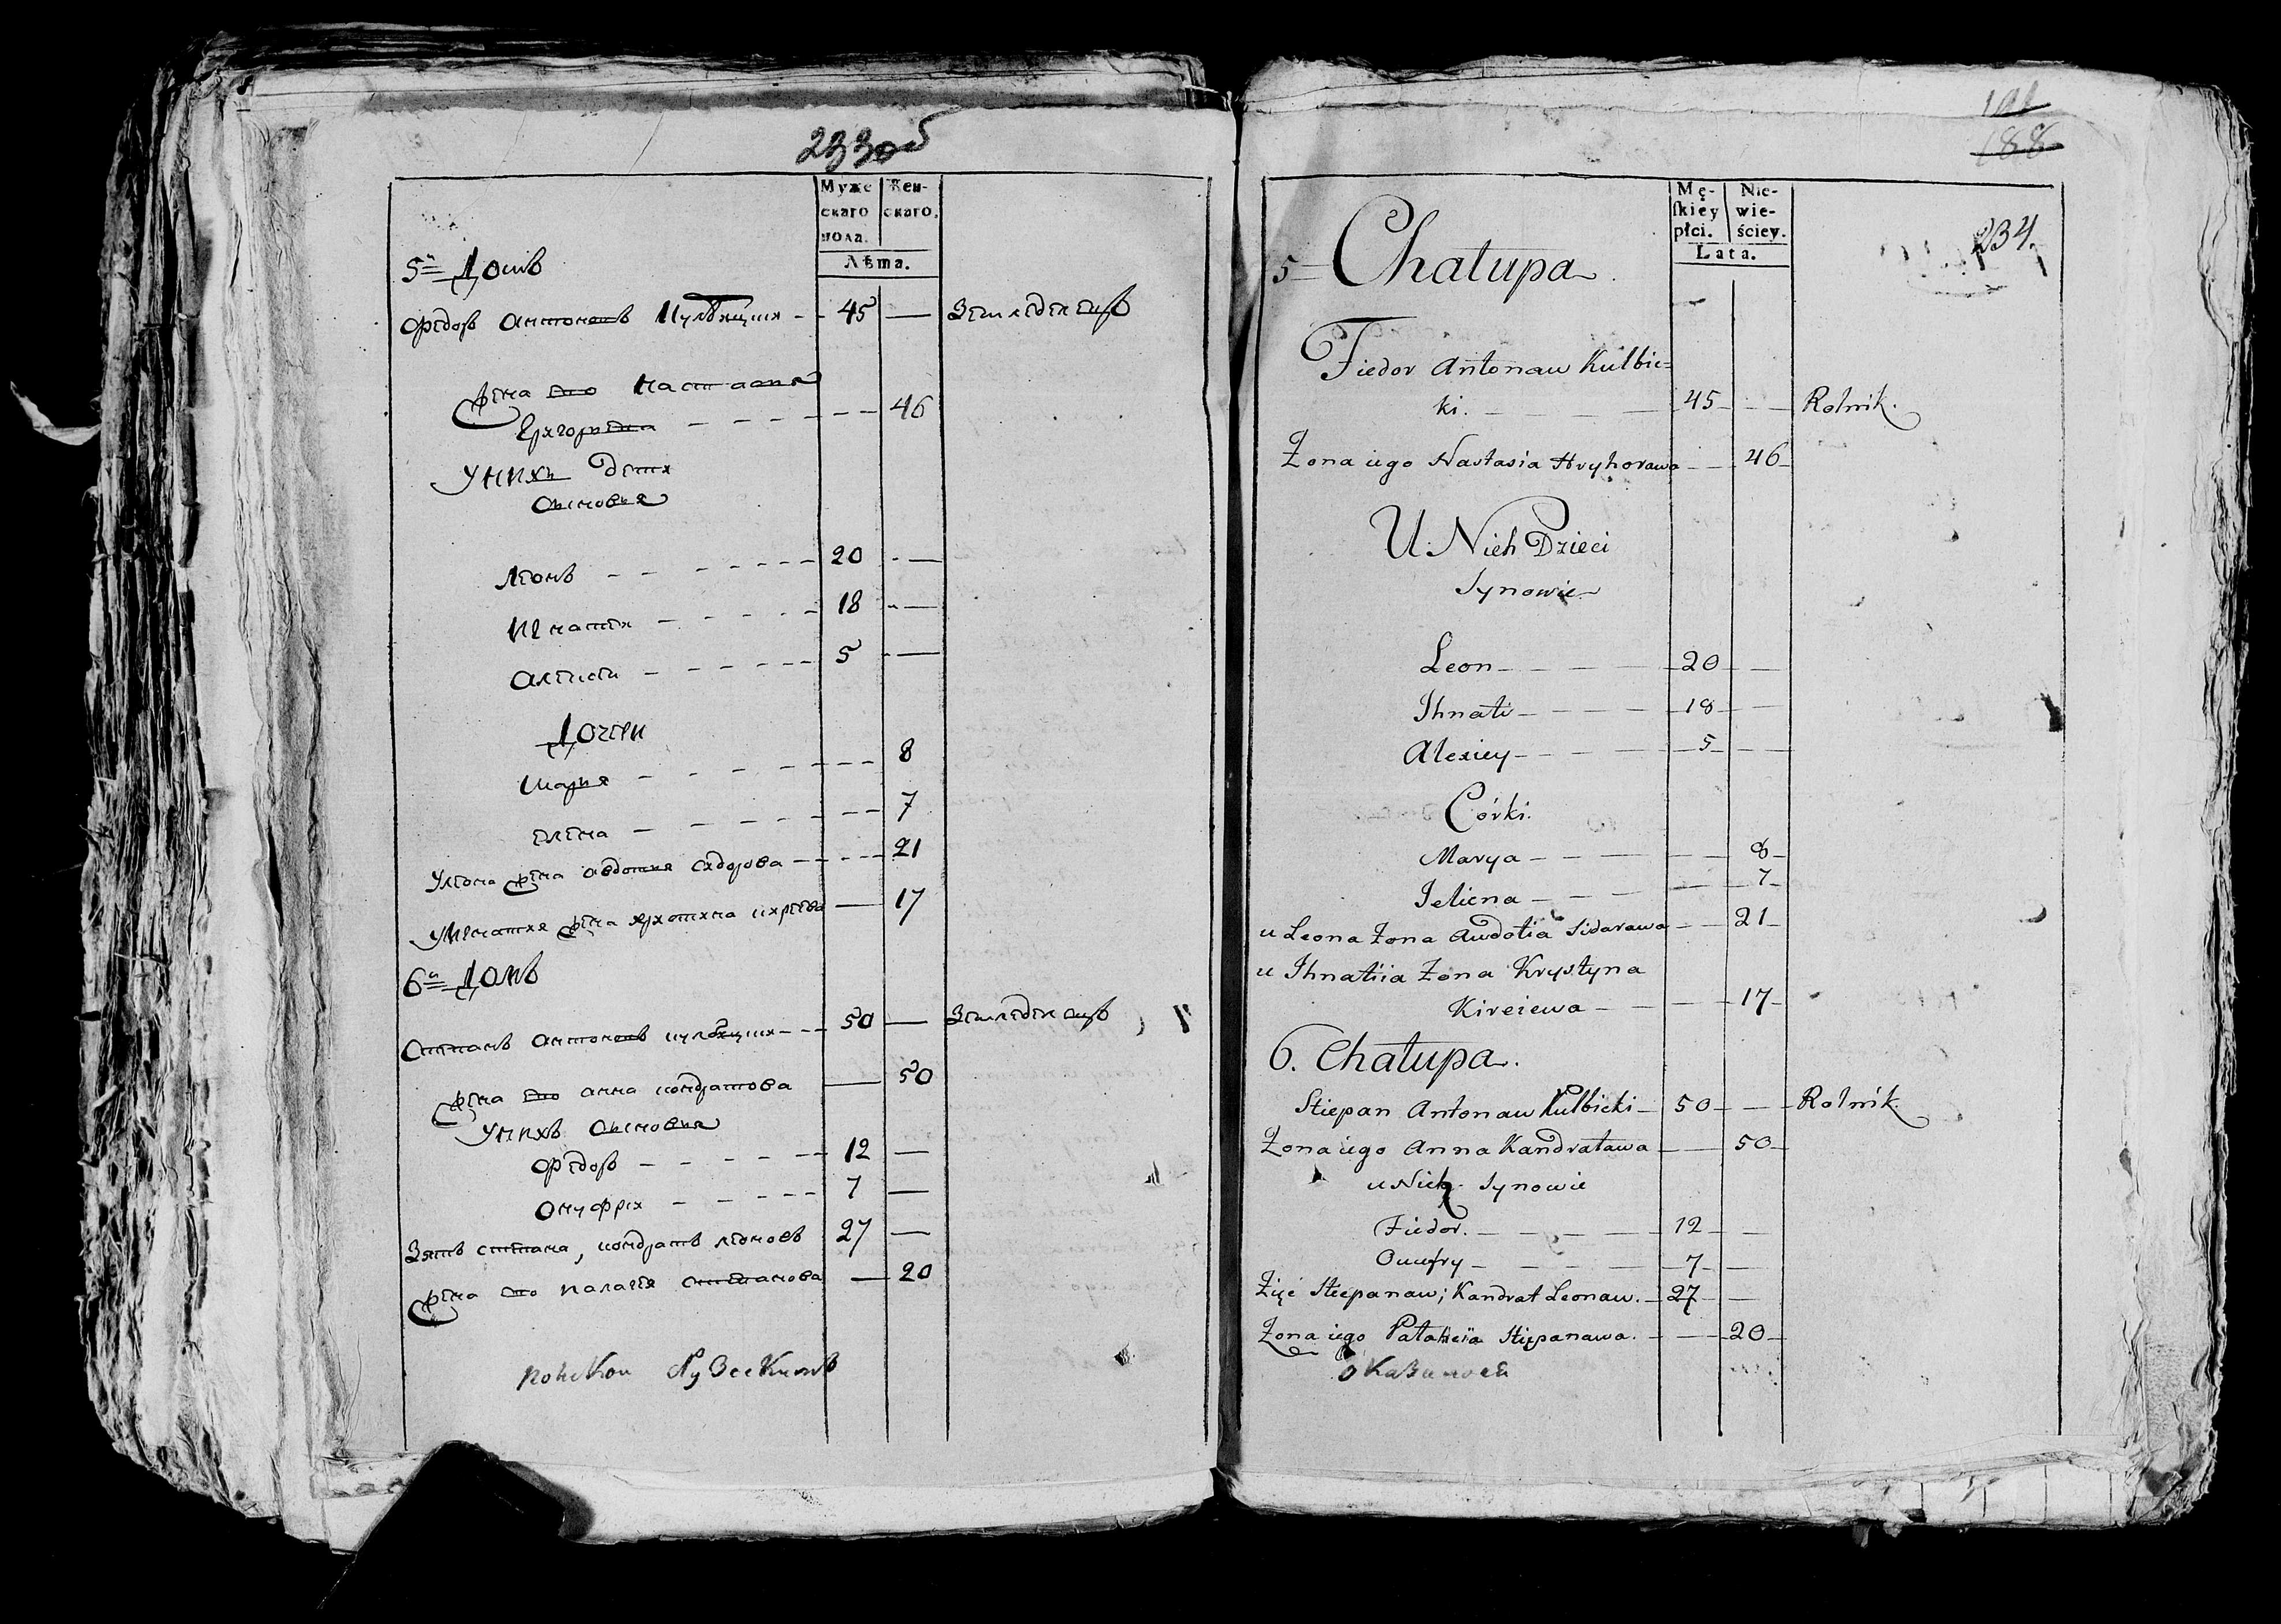 233об
Муже
скаго
пола.
Жен-
скаго.
Лѣта.
5й Домъ
Федоръ Антоновъ Кулбицки 45 — Земледелецъ
жена его Настасия
Григорьева 46
У них дети
Сыновья
Леонъ 20 —
Игнати 18 —
Алексеи 5 —
Дочери
Марья 8
Елена 7
У Леона жена Авдотья Сидорова 21
У Игнатия жена Христина Киреева — 17
6й Домъ
Степанъ Антоновъ Кулбицки 50 — Земледелецъ
жена его Анна Кондратова — 50
У нихъ Сыновья
Федоръ 12 —
Онуфри 7 —
Зять Степана, Кондратъ Леоновъ 27 —
жена его Палагея Степанова — 20
191
188
234.
Mę-
ſkiey
płci.
Nie-
wie-
ściey.
Lata.
5 Chałupa.
Fiedor Antonaw Kulbic=
ki. 45 — Rolnik.
Żona iego Nastasia Hryhorawa — 46
U Nich Dzieci
Synowie
Leon 20 —
Ihnati 18 —
Alexiey 5 —
Córki.
Marya — 8
Jeliena — 7
u Leona Żona Awdotia Sidarawa — 21
u Ihnatiia Żona Krystyna
Kireiewa — 17
6. Chałupa.
Stiepan Antonaw Kulbicki 50 — Rolnik.
Żona iego Anna Kandratawa — 50
u Nich Synowie
Fiedor. 12 —
Onufry 7 —
Zięć Stiepanaw; Kandrat Leonaw. 27 —
Żona iego Pałaheia Stiepanawa. — 20